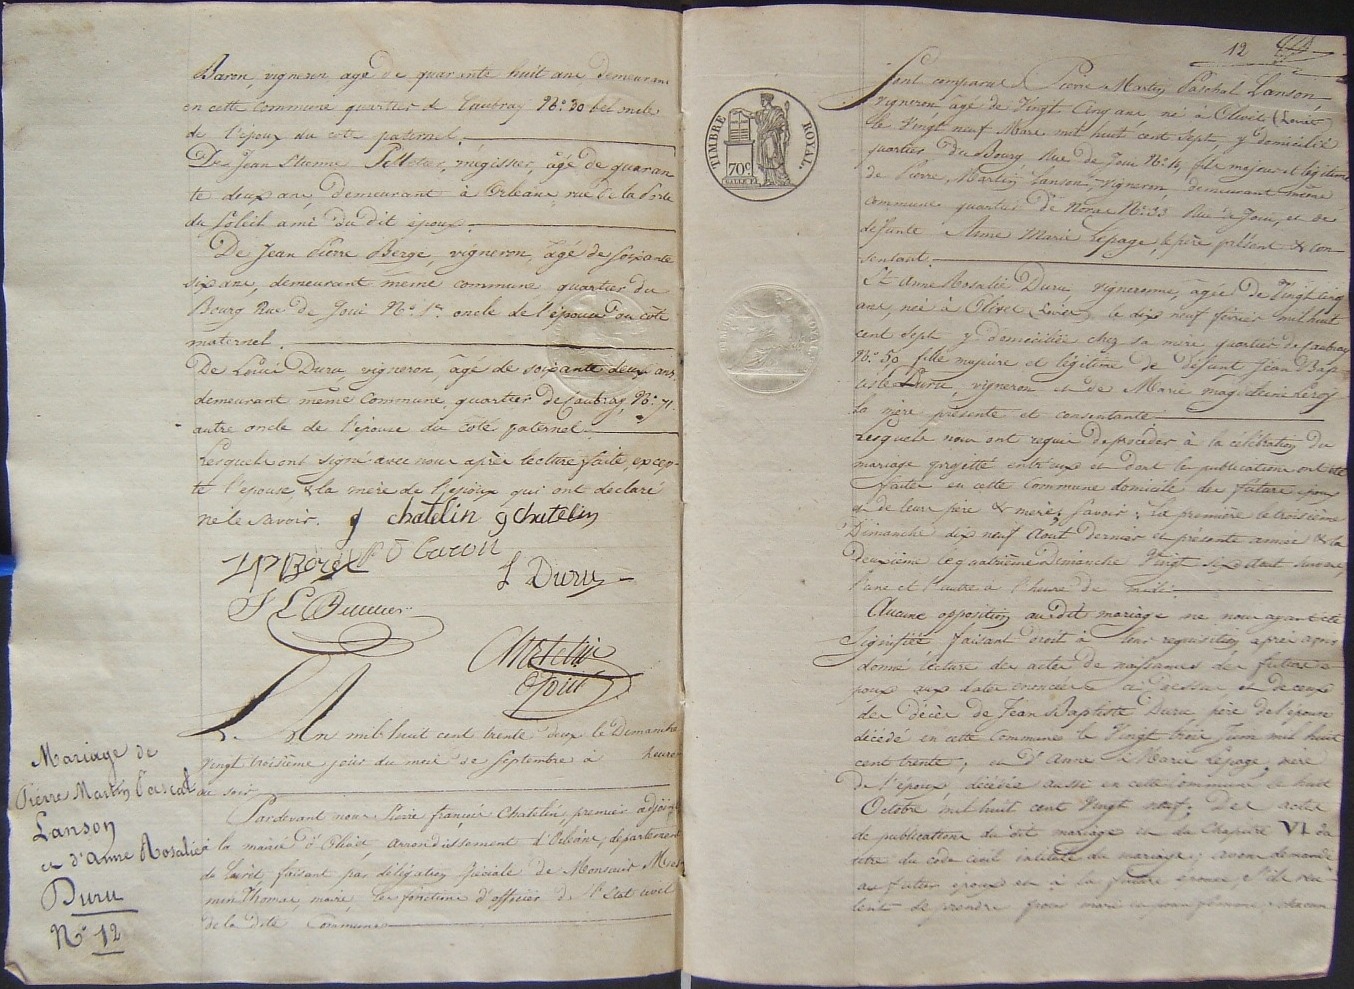 Baron, vigneron agé de quarante huit ans demeurant
en cette commune quartier de Caubray N° 30 bel oncle
de l'epoux du coté paternel.
De Jean Etienne Pelletier, mégissier, âgé de quaran
te deux ans, demeurant à Orléans rue de la Porte
du Soleil ami du dit époux.
De Jean Pierre Berge, vigneron, âgé de Soixante
six ans, demeurant même commune quartier du
Bourg Rue de Joui N° 1er oncle de l'épouse du côté
maternel.
De Louis Duru vigneron, âgé de soixante deux ans
demeurant même Commune quartier de Caubray, N° 71.
autre oncle de l'épouse du côté paternel.
Lesquels ont signé avec nous après lecture faite, excep-
té l'epouse, & la mère de l'époux qui ont déclaré
ne le savoir. g chatelin g chatelin
L Duru
Chatelin
adjoint
Mariage de
Pierre Martin Pascal
Lanson
et d'Anne Rosalie
Duru
N° 12
L'An mil huit cent trente deux le Dimanche
vingt troisième jour du mois de Septembre à heures
du soir
Pardevant nous Louis françois Chatelin, premier adjoint
à la mairie d'Olivet arrondissement d'Orléans, département
du Loiret faisant par délégation spéciale de Monsieur
Thomas, maire, les fonctions d'officier de l'Etat civil
de la dite Commune
12
TIMBRE ROYAL.
70c
Sont comparus Pierre Martin Paschal Lanson
vigneron agé de Vingt Cinq ans, né à Olivet (Loiret)
le Vingt neuf Mars mil huit cent sept, y domicilié
quartier du Bourg, Rue de Joui N° 4, fils majeur et légitime
de Pierre Martin Lanson, vigneron demeurant même
commune quartier de N° 33 Rue de Joui, et de
défunte Anne Marie Lepage, le père présent & con-
sentant.
Et Anne Rosalie Duru vigneronne, agée de Vingt cinq
ans, née à Olivet (Loiret) le dix neuf février mil huit
cent sept y domiciliée chez sa mère quartier de Caubray
N° 50 fille majeure et légitime de défunt Jean Bap
tiste Duru, vigneron et de Marie magdeleine Leroy
la mère présente et consentante
Lesquels nous ont requis de procéder à la célébration du
mariage projetté entr'eux et dont les publications ont été
faites en cette commune domicile des futurs epoux
et de leurs père & mère; savoir: la première le troisième
Dimanche dix neuf Août dernier et présente année & la
deuxième le quatrième Dimanche Vingt six dudit suivant,
l'une et l'autre à l'heure de midi
Aucune opposition au dit mariage ne nous ayant été
signifiée faisant droit à leur requisition après avoir
donné lecture des actes de naissances des futurs é-
poux aux dates enoncées ci dessus et de ceux
des décès de Jean Baptiste Duru père de l'épouse
décédé en cette Commune le Vingt trois Juin mil huit
cent trente; et d'Anne Marie Lepage, mère
de l'époux, décédée aussi en cette Commune le huit
Octobre mil huit cent Vingt neuf; Des actes
de publications du dit mariage et du Chapitre VI du
titre du code civil intitulé du mariage; avons demandé
au futur epoux et à la future epouse s'ils veu
lent se prendre pour mari et pour femme: chacun